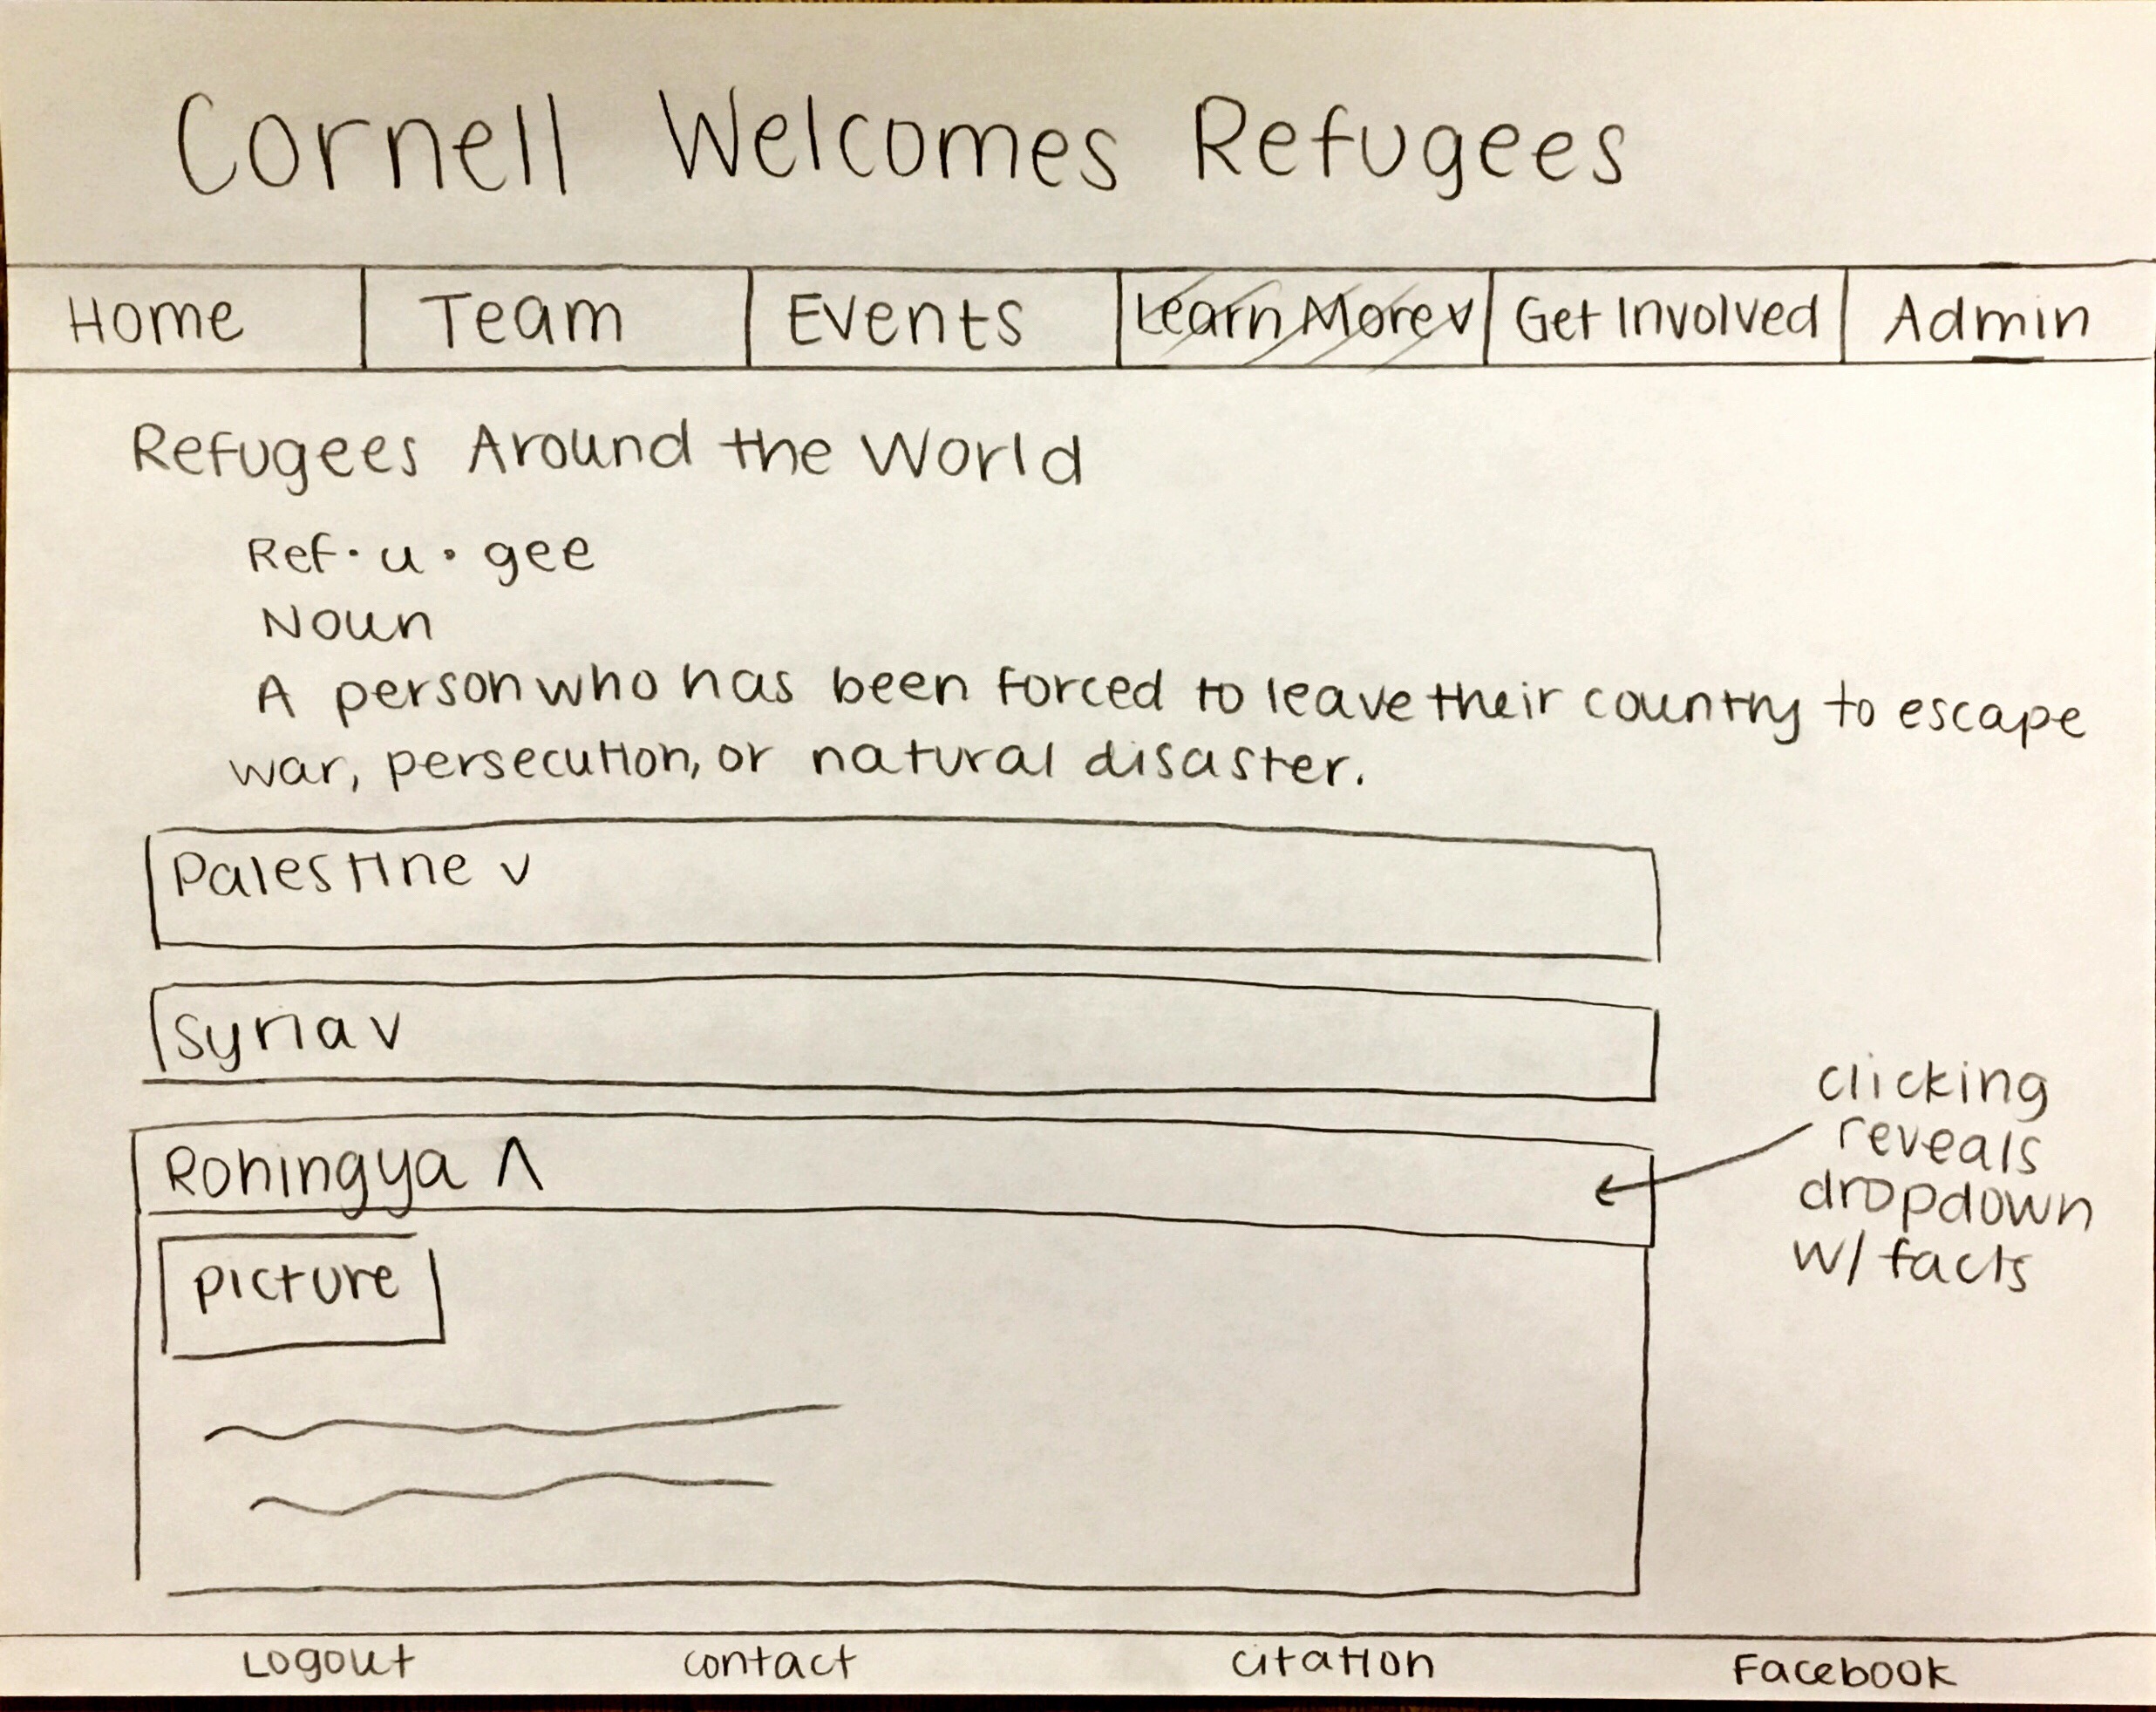 Cornell Welcomes Refugees
Home Team Events Learn More v Get Involved Admin
Refugees Around the World
Ref·u·gee
Noun
A person who has been forced to leave their country to escape
war, persecution, or natural disaster.
Palestine v
Syria v
Rohingya ʌ
picture
clicking
reveals
dropdown
w/ facts
Logout contact citation Facebook